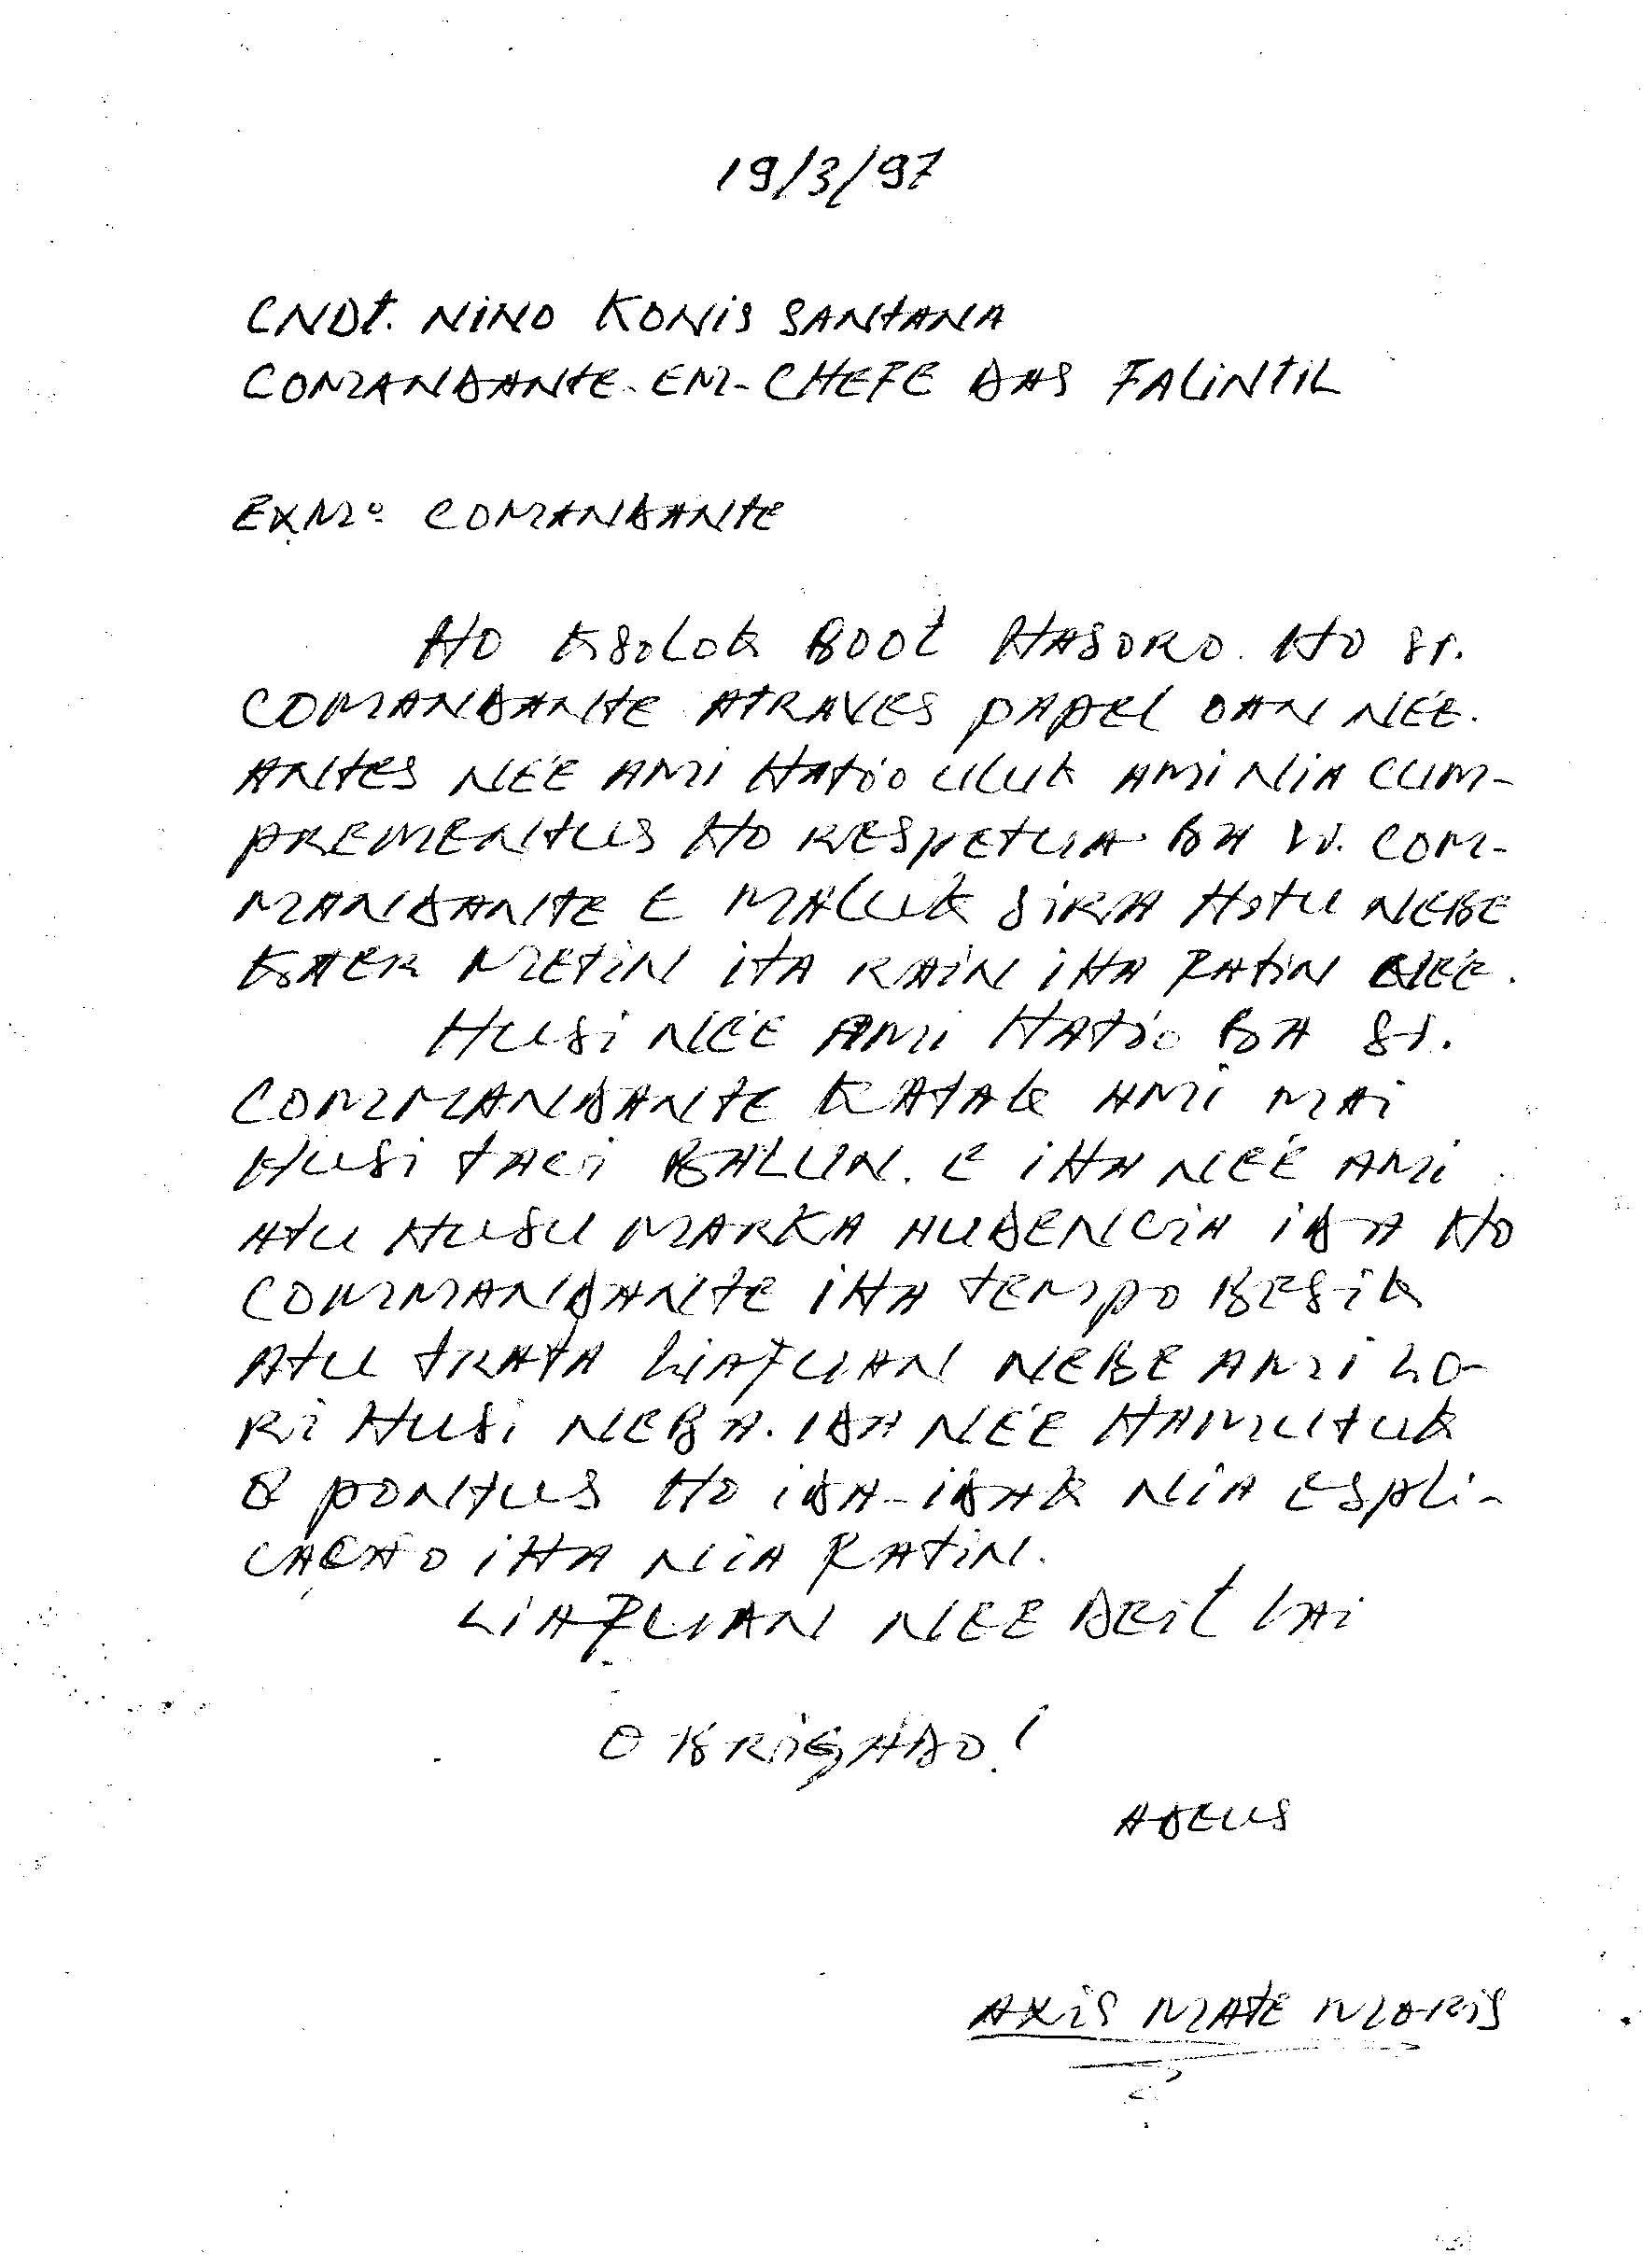 19/3/97
CNDt. NINO KONIS SANTANA
COMANDANTE-EM-CHEFE DAS FALINTIL
EXMº COMANDANTE
HO KSOLOK BOOT HASORO HO Sr.
COMANDANTE ATRAVES PAPEL OAN NÉE.
ANTES NÉE AMI HATÓO ULUK AMI NIA CUM-
PREMENTUS HO RESPETUA BA COM-
MANDANTE E MALUK SIRA HOTU NEBE
KAER METIN ITA RAIN IHA FATIN NÉE.
HUSI NÉE AMI HATÓO BA Sr.
COMMANDANTE KATAK AMI MAI
HUSI TACI BALUN. E IHA NÉE AMI
ATU HUSU MARKA AUDENCIA IDA HO
COMMANDANTE IHA TEMPO BESIK
ATU TRATA LIAFUAN NEBE AMI LO-
RI HUSI NEBA. IDA NÉE HAMUTUK
8 PONTUS HO IDA-IDAK NIA ESPLI-
CAÇAO IHA NIA FATIN.
LIAFUAN NEE DEIT LAI
OBRIGADO!
ADEUS
AXIS MATE MORIS